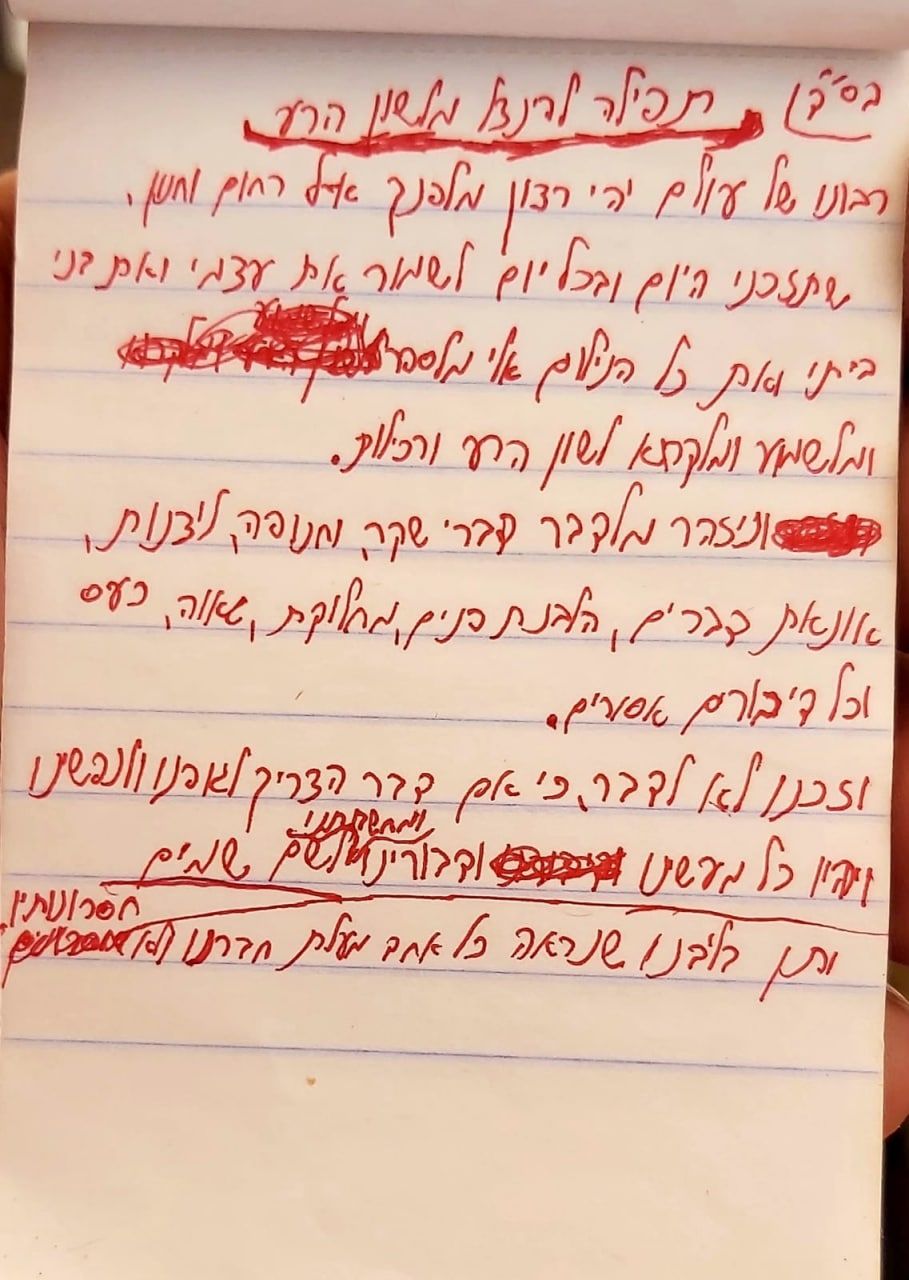 בס״ד) תפילה להינצל מלשון הרע
רבונו של עולם יהי רצון מלפנך א-ל רחום וחנון,
שתזכני היום ובכל יום לשמור את עצמי ואת בני
ביתי ואת כל הנילוים אלי מלספר
ומלשמוע ומלקבל לשון הרע ורכילות.
וניזהר מלדבר דברי שקר, וחנופה, ליצנות,
אונאת דברים, הלבנת פנים, מחלוקת, גאווה, כעס
וכל דיבורים אסורים.
וזכנו לא לדבר, כי אם דבר הצריך לגופנו ולנפשינו
ומחשבותינו
ויהיו כל מעשינו ודבורינו לשם שמים
חסרונותיו.
ותן בליבנו שנראה כל אחב מעלת חברנו ולא